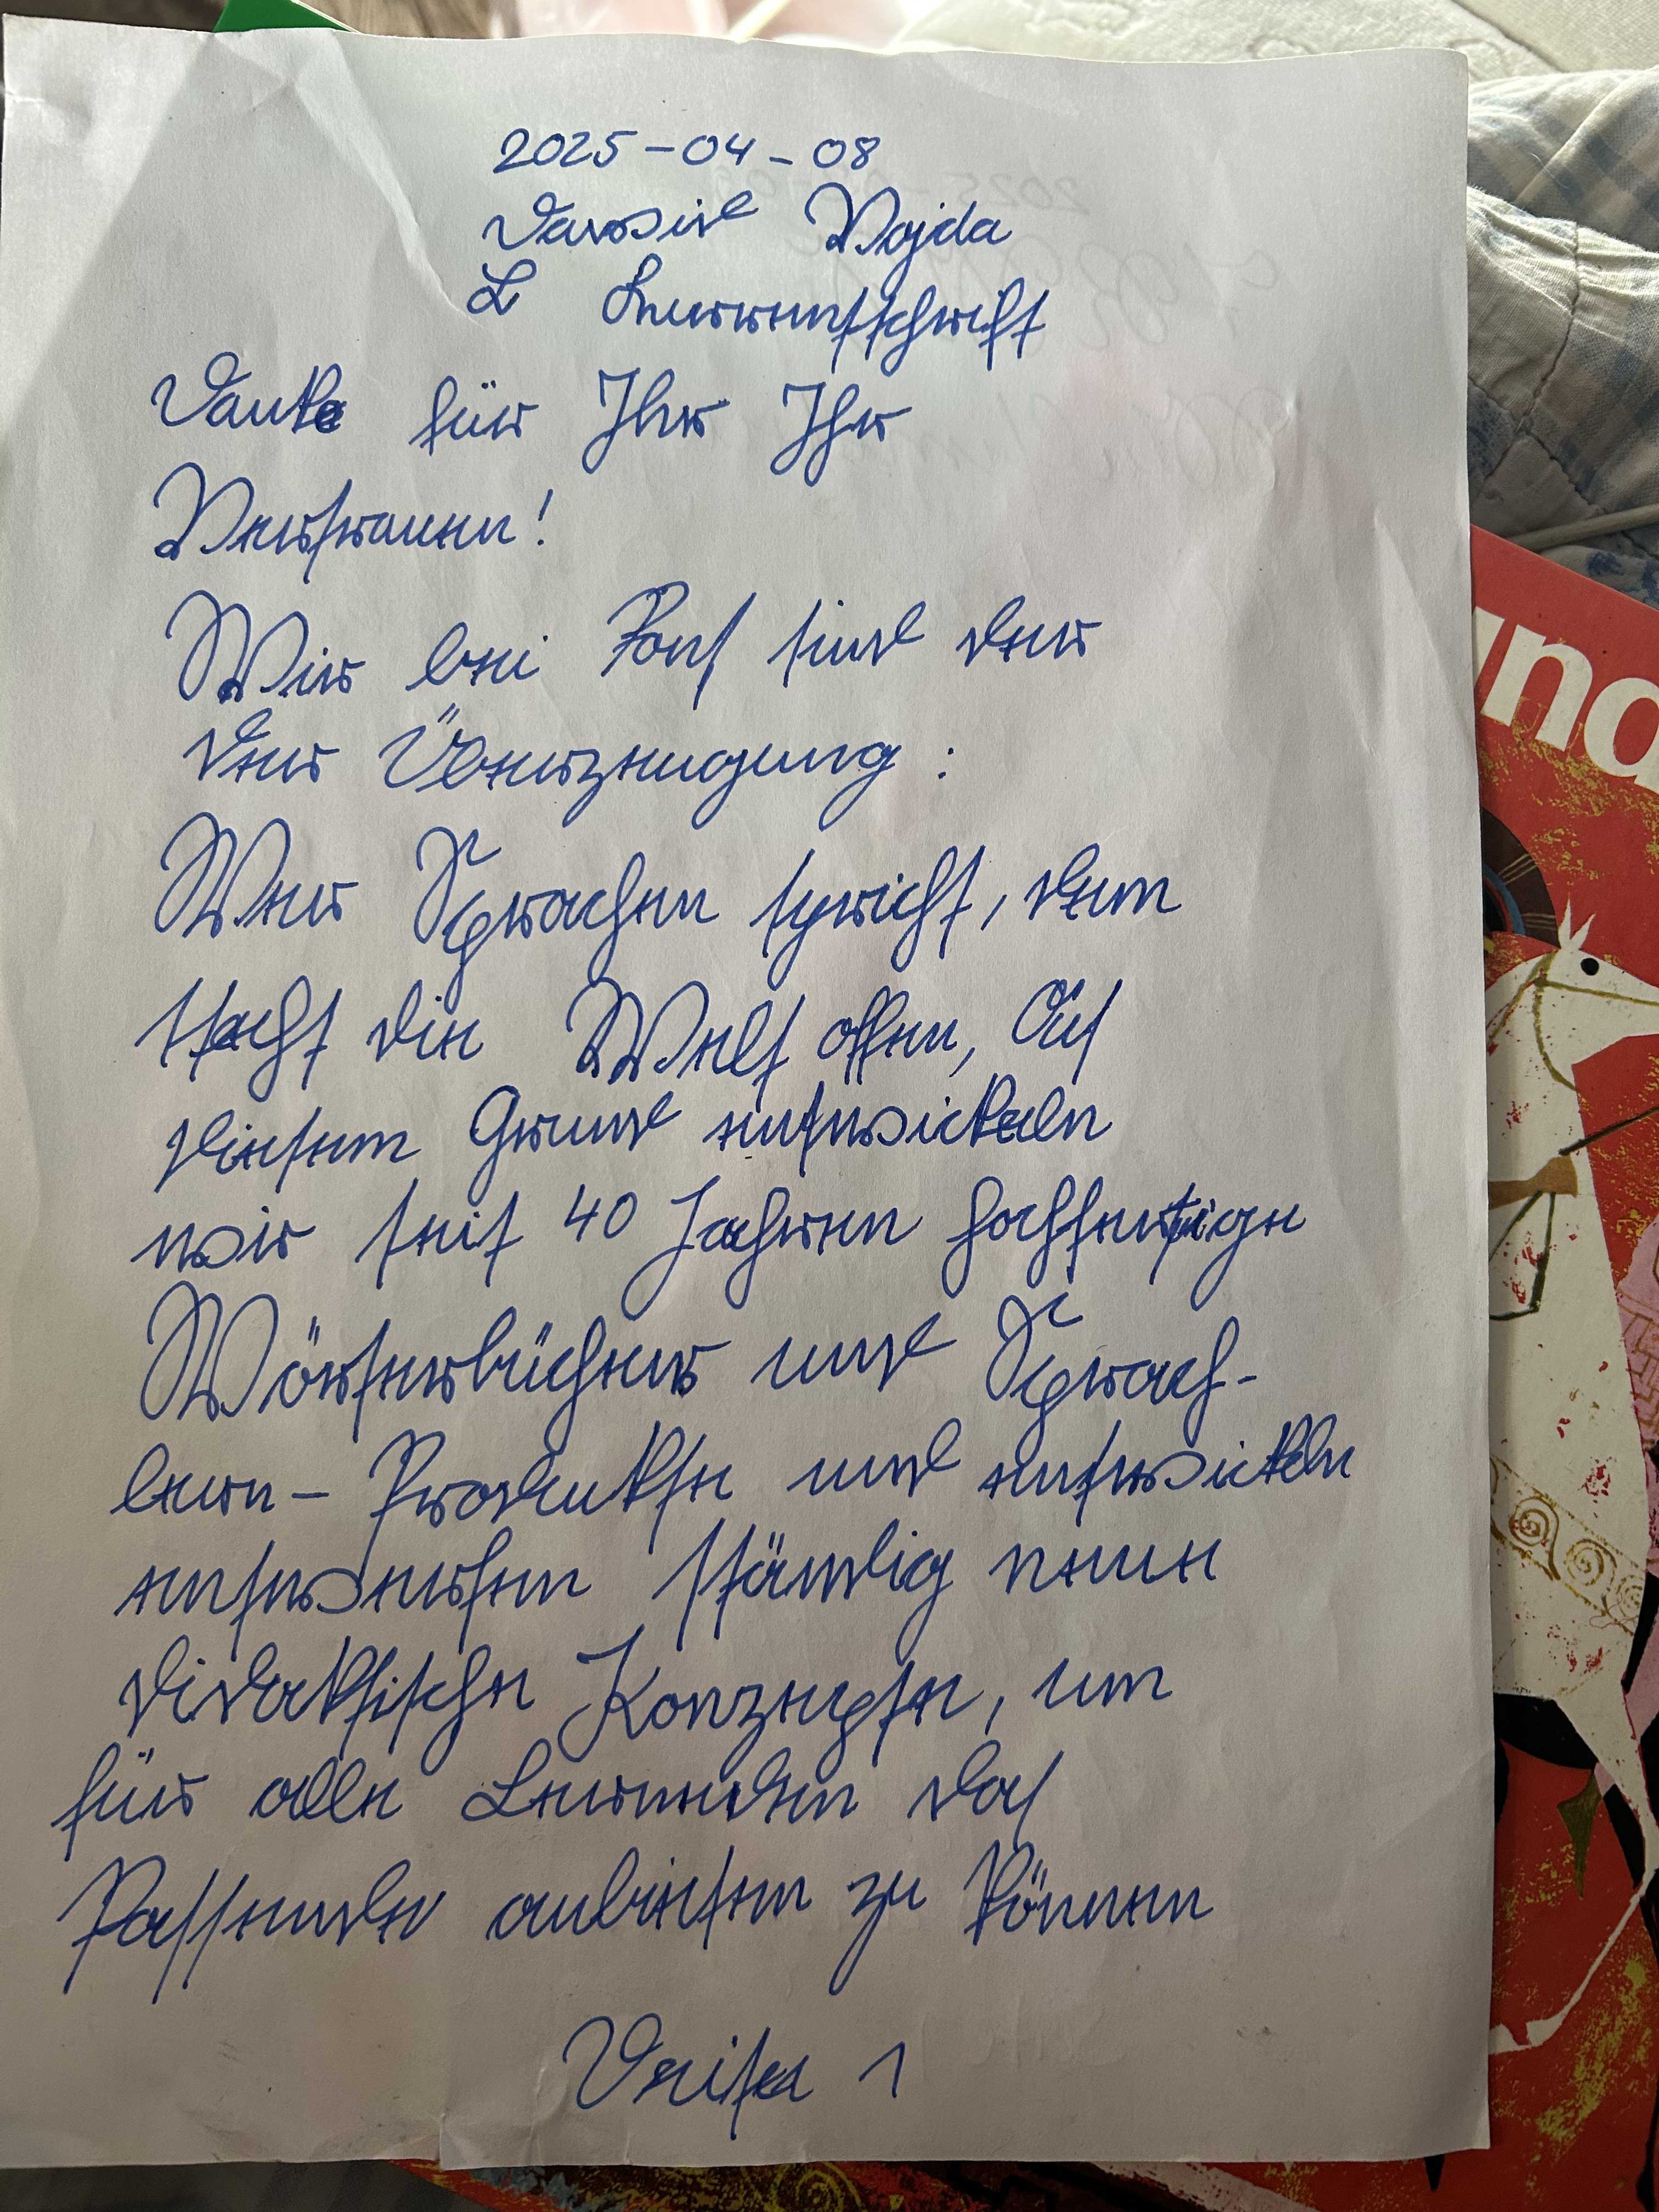 2025-04-08
Dawid Wojda
L Kurrentschrift
Danke für Ihr Ihr
Vertrauen!
Wir bei Pons sind der
der Überzeugung:
Wer Sprachen spricht, dem
steht die Welt offen, Aus
diesem Grund entwickeln
wir seit 40 Jahren hochwertige
Wörterbücher und Sprach-
lern-Produkte und entwickeln
entwerfen ständig neue
didaktische Konzepte, um
für alle Lernenden das
Passende anbieten zu können
Seite 1
und